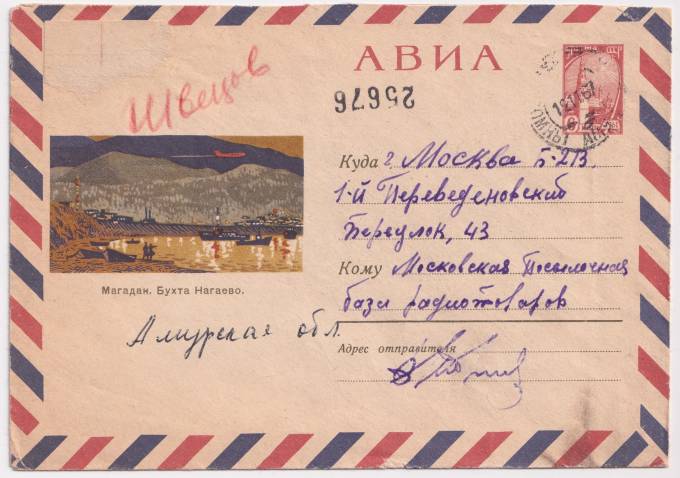 АВИА
Швецов
25676
Куда г. Москва б-213
1-й Переведеновский
Переулок, 43
Кому Московская Посылочная
база радиотоваров
Магадан. Бухта Нагаево.
Амурская обл.
Адрес отправителя